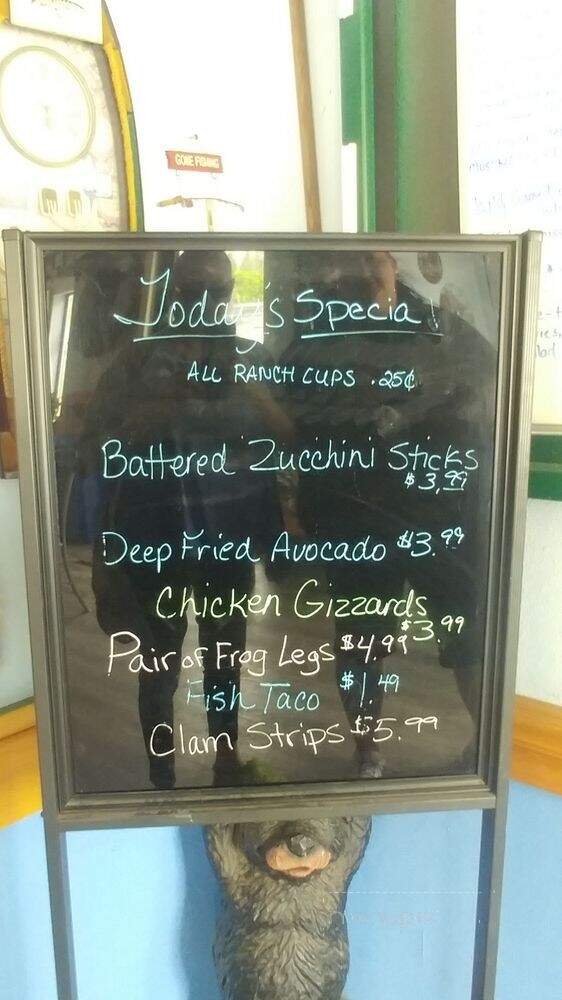 GONE FISHING
Today's Special
ALL RANCH CUPS .25¢
Battered Zucchini Sticks
$3.99
Deep Fried Avocado $3.99
Chicken Gizzards
$3.99
Pair of Frog Legs $4.99
Fish Taco $1.49
Clam Strips $5.99